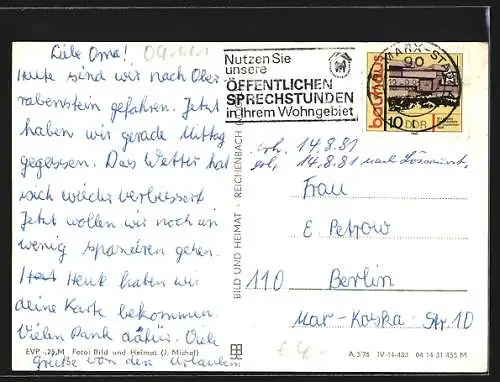 Liebe Oma!
Heute sind wir nach Ober
rabenstein gefahren. Jetzt
haben wir gerade Mittag
gegessen. Das Wetter hat
sich wieder verbessert
Jetzt wollen wir noch ein
wenig spazieren gehen.
Heut Heute haben wir
deine Karte bekommen.
Vielen Dank dafür. Viele
Grüße von den Urlaubern
EVP -,25 M Foto: Bild und Heimat (J. Michel)
BILD UND HEIMAT · REICHENBACH
09.1.1.1
Nutzen Sie
unsere
ÖFFENTLICHEN
SPRECHSTUNDEN
in Ihrem Wohngebiet
MARX-STADT
90
bauhaus
10 DDR
erh. 14.8.81
14.8.81 nach
Frau
E. Petrow
110 Berlin
Mar-Koska-Str. 10
A 3/78 IV-14-483 04 14 31 453 M